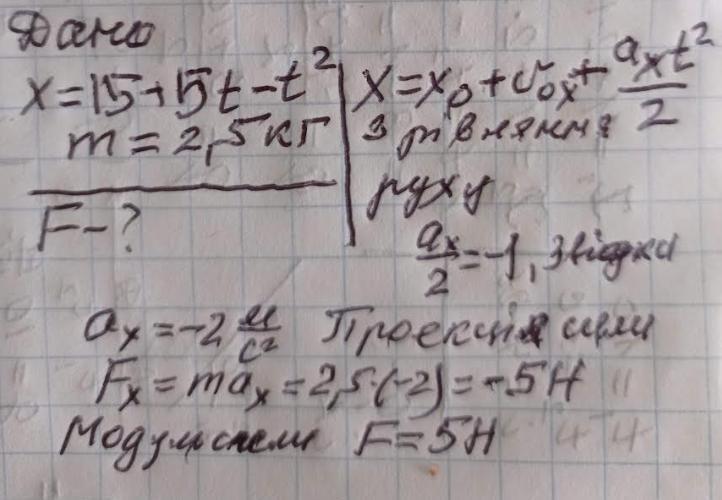 Дано
x=15+5t-t²
m=2,5кг
F-?
x=x₀+v₀ₓ+aₓt²/2
з рівняння
руху
aₓ/2=-1, звідки
aₓ=-2 м/с² Проекція сили
Fₓ=maₓ=2,5·(-2)=-5Н
Модуль сили F=5Н